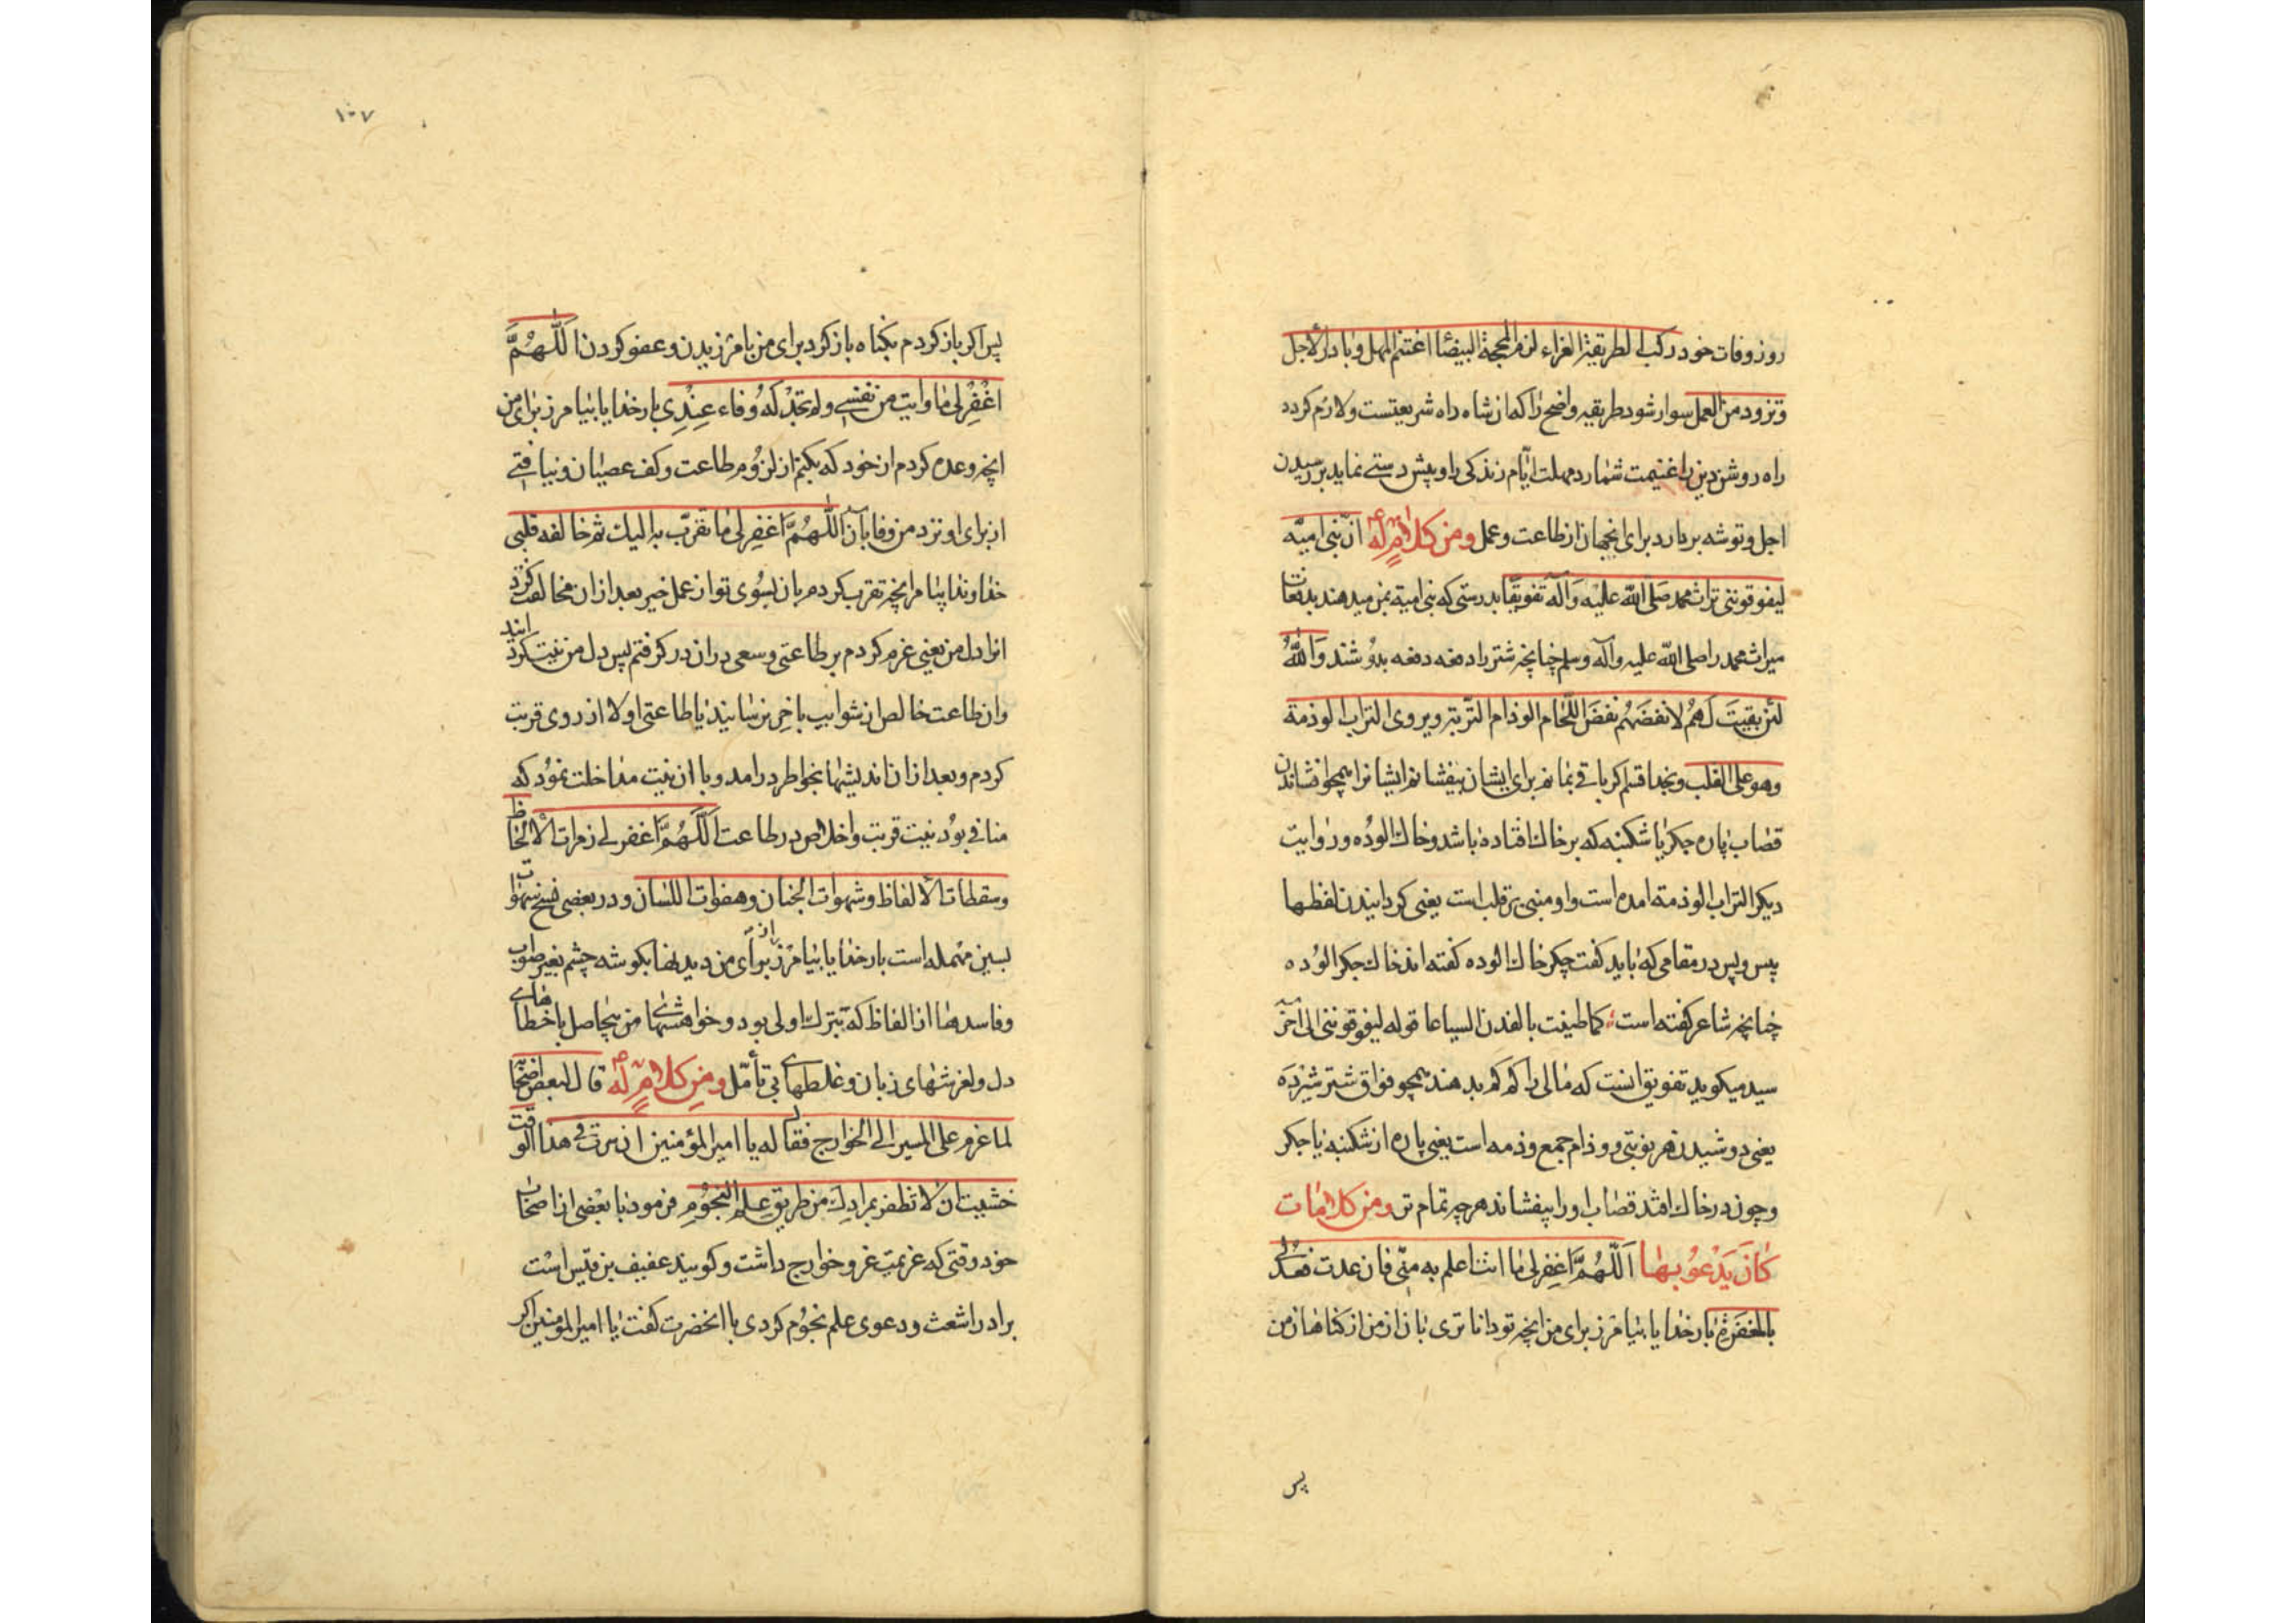 روز وفات خود رکب الطریقة الغراء لزم المحجة البیضا اغتنم المهل و بادر الاجل
و تزود من العمل سوار شود طریقه واضح را که آن شاه راه شریعتست و لازم کردد
راه روشن دین را غنیمت شمارد مهلت ایّام زندکی را و پیش دستی نماید بر رسیدن
اجل و توشه بردارد برای آنجهان از طاعت و عمل و من کلامٍ له انّ بنی امیّه
لیفوقوننی تراث محمد صلی الله علیه و آله تفویقًا بدرستی که بنی امیة بمن میدهند بدفعات
میراث محمد را صلی الله علیه و آله و سلم چنانچه شتر را دفعه دفعه بدوشند وَاللهُ
لئن بقیتَ لَهُم لانفضَهُم نفضَ اللحّام الوذام التّربة و یروی التراب الوذمة
و هو علی القلب و بخدا قسم اکر باقی بمانم برای ایشان بیفشانم ایشانرا همچو افشاندن
قصّاب پاره جکر یا شکنبه که بر خاک افتاده باشد و خاک الوُده و روایت
دیکر التراب الوذمة امده است و او مبنی بر قلب است یعنی کردانیدن لفظها
پیس و پس در مقامی که باید کفت جکر خاک الوده کفته اند خاک جکر الوُده
چنانچه شاعر کفته است کما طینت بالفدن السیاعا قوله لیفوقوننی الی آخر
سید میکوید تفویق انست که مالی را کم کم بدهند همچو فواق شتر شیرده
یعنی دوشیدن هر نوبتی و وذام جمع وذمه است یعنی پاره از شکنبه یا جکر
و چون در خاک افتد قصّاب او را بیفشاند هر چه تمام تر و من کلامات
کانَ یَدْعُو بِهَا اَللّهُمَّ اغفِر لی مٰا انت اعلم به منّی فان عدت فعد لی
بالمغفرة بار خدایا بیامرز برای من انچه تو داناتری بان از من از کناهان من
پس
۱۰۷
پس اکر باز کردم بکناه باز کرد برای من بامرزیدن و عفو کردن اَللّهُمَّ
اغْفِرْ لی مٰا وایت من نفسی و لم تجدْ لَهُ وفاء عِنْدِی بار خدایا بیامرز برای من
انچه وعده کردم از خود که بکنم از لزوُم طاعت و کف عصیان و نیافتی
از برای او نزد من وفا بآن اَللّهُمَّ اغفِر لی مٰا تقرّب به الیک ثم خالفه قلبی
خداوندا بیامرز انچه تقرب کردم بان بسُوی تو از عمل خیر بعد از ان مخالفت کرد
انرا دل من یعنی عزم کردم بر طاعتی و سعی در ان در کرفتم پس دل من نیت کردانید
و ان طاعت خالص از شوایب باخِر نرسانید یا طاعتی اولا از روی قربت
کردم و بعد از ان اندیشها بخواطر درامد و با ان نیت مداخلت نموُد که
منافی بوُد نیت قربت و اخلاص در طاعت اَللّهُمَّ اغفر لی رمزات الالحاظ
و سقطات الالفاظ و شهوات الجنان و هفوات اللسان و در بعضی نسخ سهوات
بسین مهمله است بار خدایا بیامرز از برای من دیدنها بکوشه چشم بغیر صواب
و فاسدها از الفاظ که تبترک اولی بود و خواهشهای من بیحاصل با خطاهای
دل و لغزشهای زبان و غلطهای بی تأمّل و مِن کلامٍ لَه قال لبعض اصحابه
لما عزم علی المسیر الی الخوارج فقال له یا امیر المؤمنین ان سرت فی هذا الوقت
خشیت ان لا تظفر بمرادِک من طریق علم النجوُمِ فرمود با بعضی از اصحاب
خود وقتی که عزیمت غزو خوارج داشت و کویند عفیف بن قیس است
برادر اشعث و دعوی علم نجوُم کردی با انحضرت کفت یا امیر المؤمنین اکر